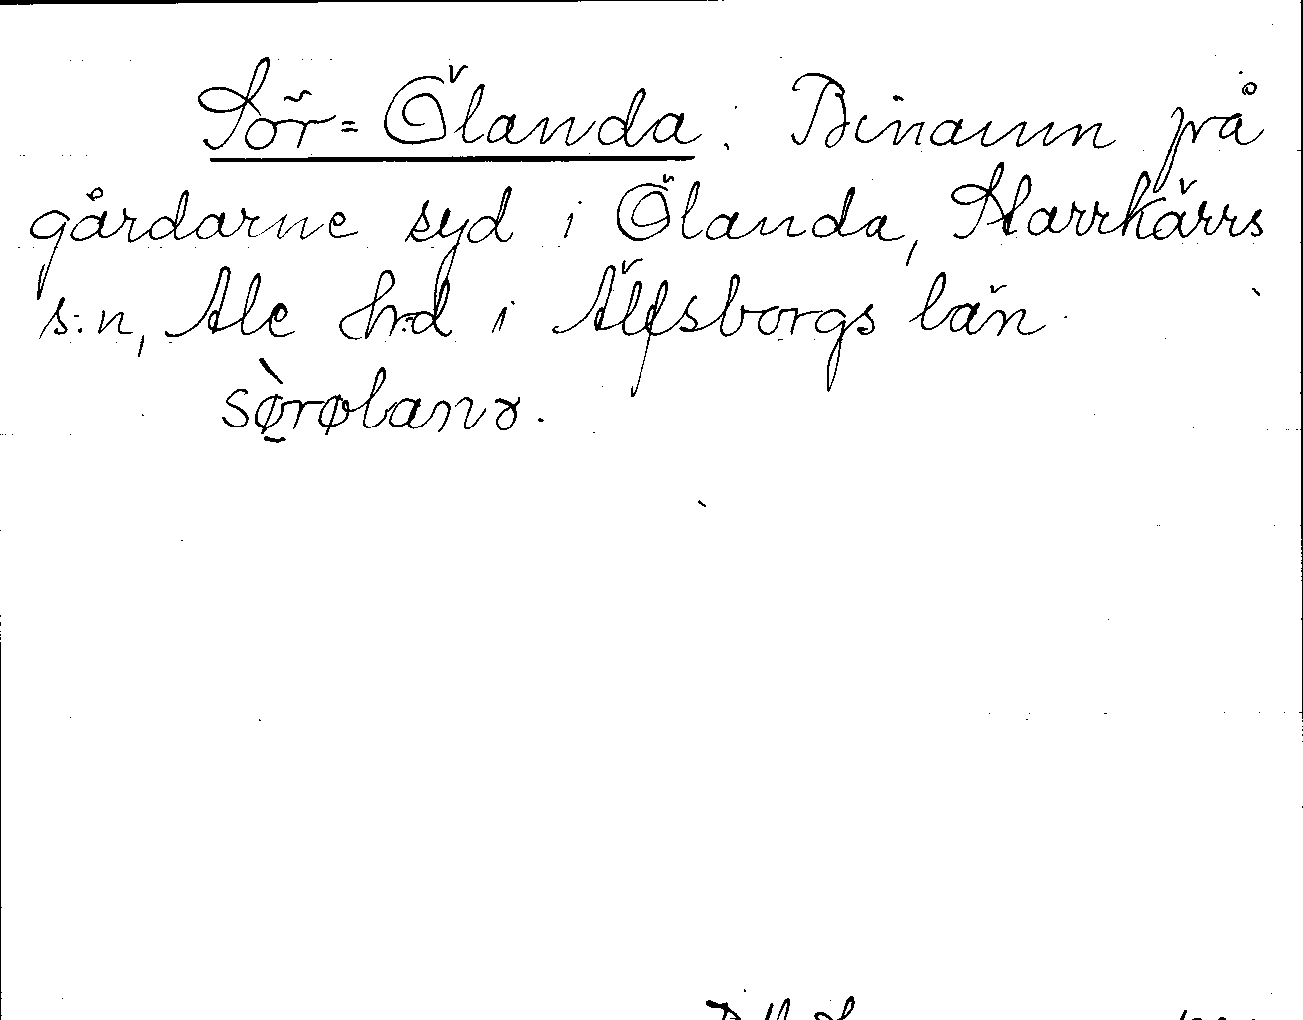 Sör=Ölanda. Binamn på
gårdarne syd i Ölanda, Starrkärrs
s:n, Ale hrd i Älfsborgs län
sø̀rølanɤ.